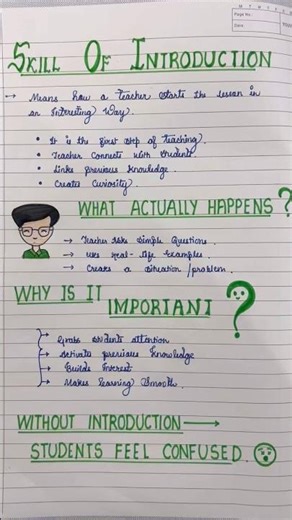 Page No.
Date
SKILL OF INTRODUCTION
→ Means how a Teacher starts the lesson in
an Interesting Way.
• It is the first step of teaching.
• Teacher Connects with students
• Links previous knowledge.
• Creates Curiosity.
WHAT ACTUALLY HAPPENS ?
→ Teacher Asks Simple Questions.
→ Use Real-life Examples.
→ Creats a situation/problem.
WHY IS IT
IMPORTANT ?
→ Grabs students attention
→ Activate previous Knowledge
→ Builds Interest
→ Makes learning Smooth.
WITHOUT INTRODUCTION →
STUDENTS FEEL CONFUSED.